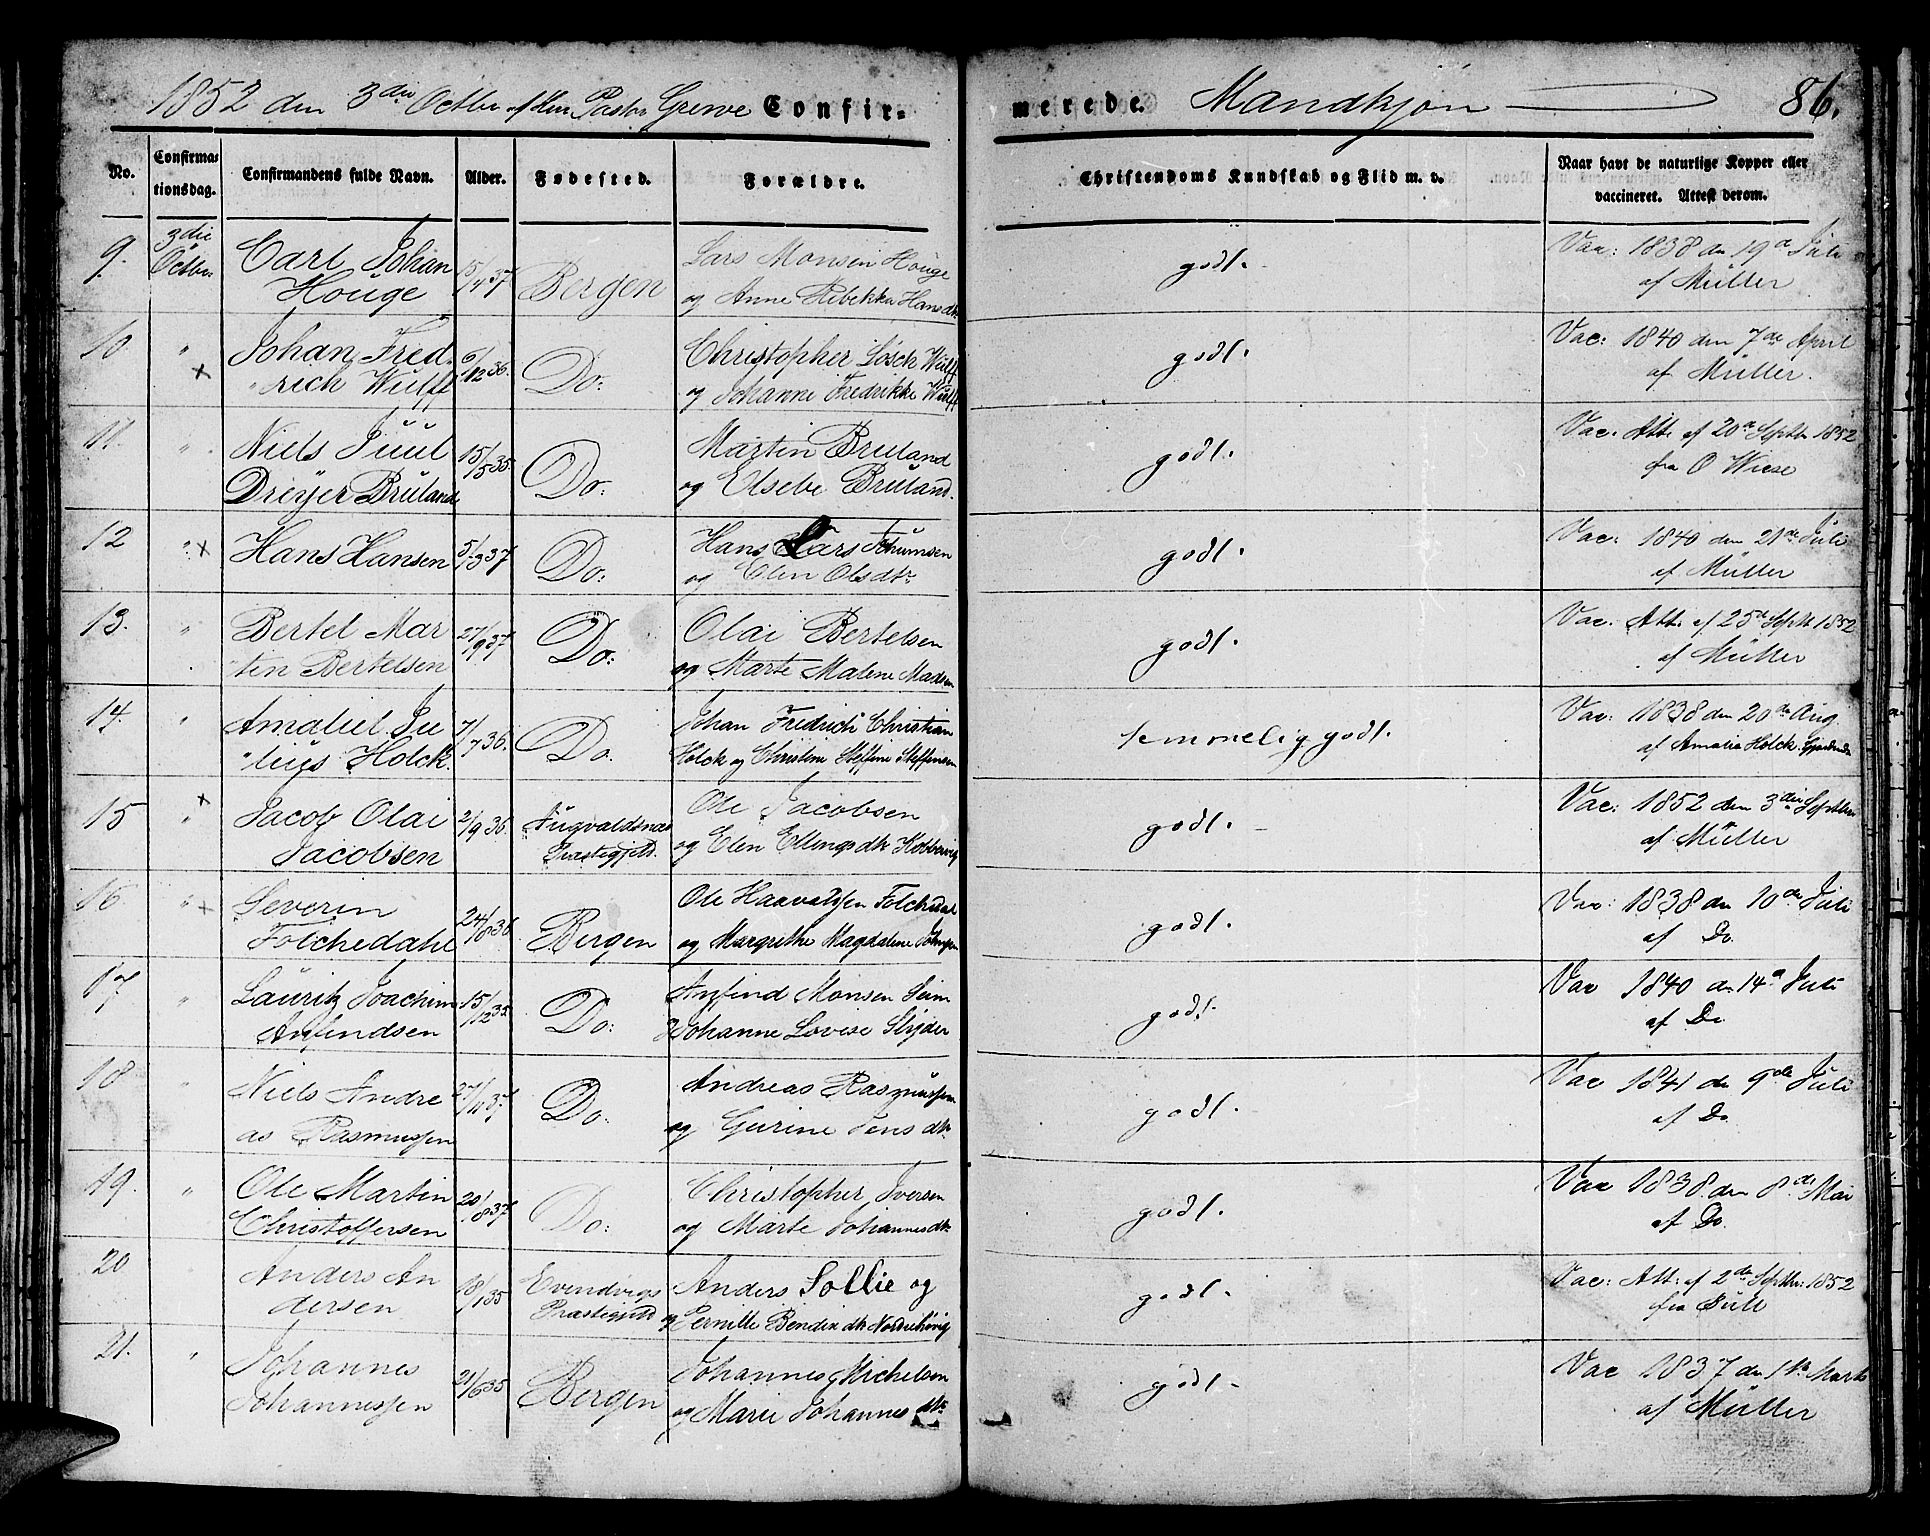 1852 den 3die Octbr af Herr Pastor Grewe Confir-
merede. Mandkjøn 86.
No. Confirmationsdag. Confirmandens fulde Navn. Alder. Fødested. Forældre. Christendoms Kundskab og Flid m. v. Naar havt de naturlige Kopper eller vaccineret. Attest derom.
9. 3die Octbr. Carl Johan Houge 15/4 37 Bergen Lars Monsen Houge og Anne Rebekka Hansdtr godt. Vac: 1838 den 19d Juli af Müller
10. " x Johan Fredrich Wulff 6/12 36. Do. Christopher Losch Wulff og Johanne Fredrikke Wulff godt. Vac: 1840 den 7de April af Müller.
11. " Niels Juul Dreyer Bruland 15/5 35. Do. Martin Bruland og Elsebe Bruland. godt. Vac. Att. af 20d Septbr 1852 fra O Wiese
12 " x Hans Hansen 5/3 37 Do. Hans Lars og Elen Olsdtr godt. Vac: 1840 den 21de Juli af Müller
13. " Bertel Marten Bertelsen 27/9 37 Do: Olai Bertelsen og Marte Malene Madsen godt. Vac: Att. af 25d Septbr 1852 af Müller
14. " Amaliel Julius Holck. 7/7 36. Do. Johan Fredrich Christian Holck og Christine Steffine Steffensen temmelig godt. Vac: 1838 den 20de Aug. af Amalia Holck
15 x " Jacob Olai Jacobsen 2/9 36. Augvaldsnæs Præstegjeld. Ole Jacobsen og Elen Ellingsdtr Kobbervig godt. Vac: 1852 den 3die Septbr af Müller
16. " x Severin Folchedahl 24/8 36 Bergen Ole Haavalsen Folchedal og Margrethe Magdalene Johnsen godt. Vac: 1838 den 10de Juli af Do.
17 " Lauritz Joachim Anfindsen 15/12 35. Do: Anfind Monsen Seim og Johanne Lovise Slyder godt. Vac 1840 d. 14d Juli af Do
18 " Niels Andreas Rasmussen 27/11 37 Do: Andreas Rasmussen og Gurine Jensdtr godt. Vac 1841 den 9de Juli af Do
19. " Ole Martin Christoffersen 20/8 37 Do. Christopher Iversen og Marte Johannesdtr godt. Vac 1838 den 8de Mai af Do.
20 Anders Andersen 18/1 35 Evendvigs Præstegjeld Anders Sollie og og Pernille Bendixdtr godt. Vac: Att: af 2de Septbr: 1852 fra Jull
21. " Johannes Johannessen 21/6 35 Bergen Johannes Michelsen og Marie Johannesdtr godt. Vac 1837 den 1te Marts af Müller